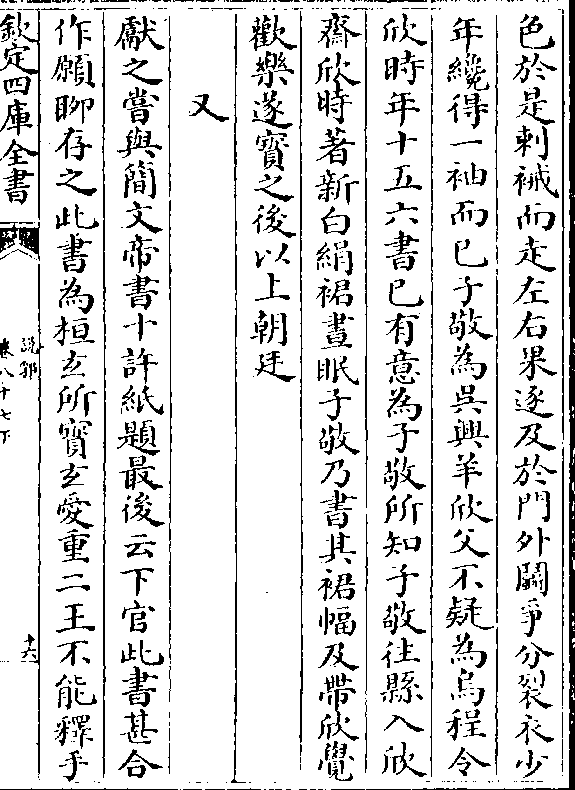 色於是剌裓而走左右果逐及於門外鬬爭分裂衣少
年纔得一袖而已子敬為吳興羊欣父不疑為烏程令
欣時年十五六書已有意為子敬所知子敬往縣入欣
齋欣時著新白絹裙晝眠子敬乃書其裙幅及帶欣覺
歡樂遂寶之後以上朝廷
又
獻之嘗與簡文帝書十許紙題最後云下官此書甚合
作願聊存之此書為桓玄所寶玄愛重二王不能釋手
欽定四庫全書
說郛
卷八十七下
十六